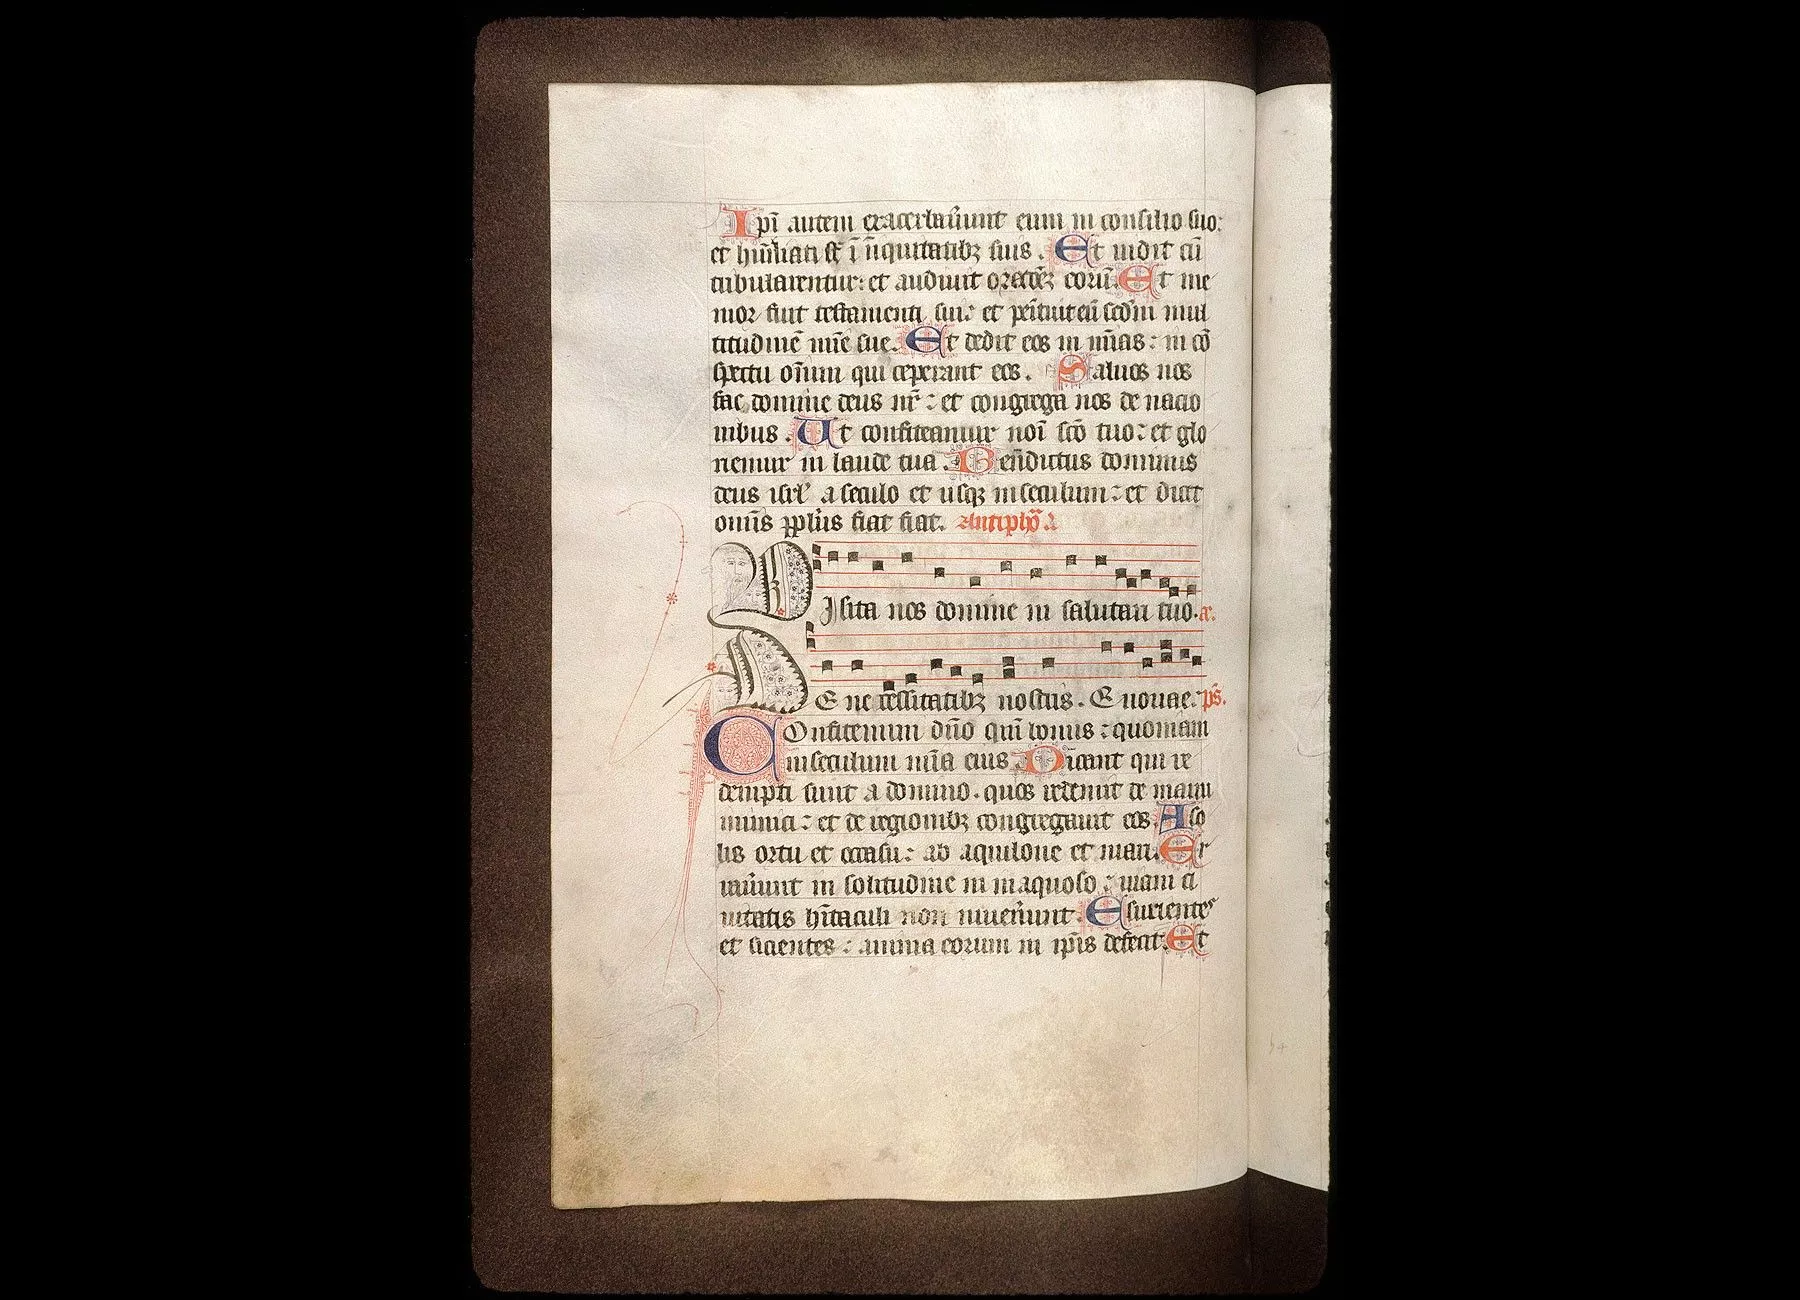 Ipī autem exacerbauūnt eum in consilio suo:
et hūiliati sūt ī iniquitatibꝫ suis. Et uidit cū
tribularentur: et audiuit oracōeꝫ eorū. Et me
mor fuit testamenti sui: et penituit eū scdm mul
titudinē mīe sue. Et dedit eos in mīas: in cō
spectu oīum qui ceperant eos. Saluos nos
fac domine deus nr̄: et congrega nos de nacio
nibus. Ut confiteamur noī scō tuo: et glo
riemur in laude tua. Benedictus dominus
deus isrl' a seculo et usqꝫ in seculum: et dicet
omīs pplus fiat fiat. Antiphō.
Uisita nos domine in salutari tuo. a.
De necessitatibꝫ nostris. E uouae. ps.
Confitemini dn̄o qm̄ bonus: quoniam
in seculum mīa eius. Dicant qui re
dempti sunt a domino. quos redemit de manu
inimici: et de regionibꝫ congregauit eos. A so
lis ortu et occasu: ab aquilone et mari. Er
rauūnt in solitudine in inaquoso: uiam ci
uitatis hītaculi non inuenūnt. Esurientes
et sicientes: anima eorum in ipīs defecit. Et